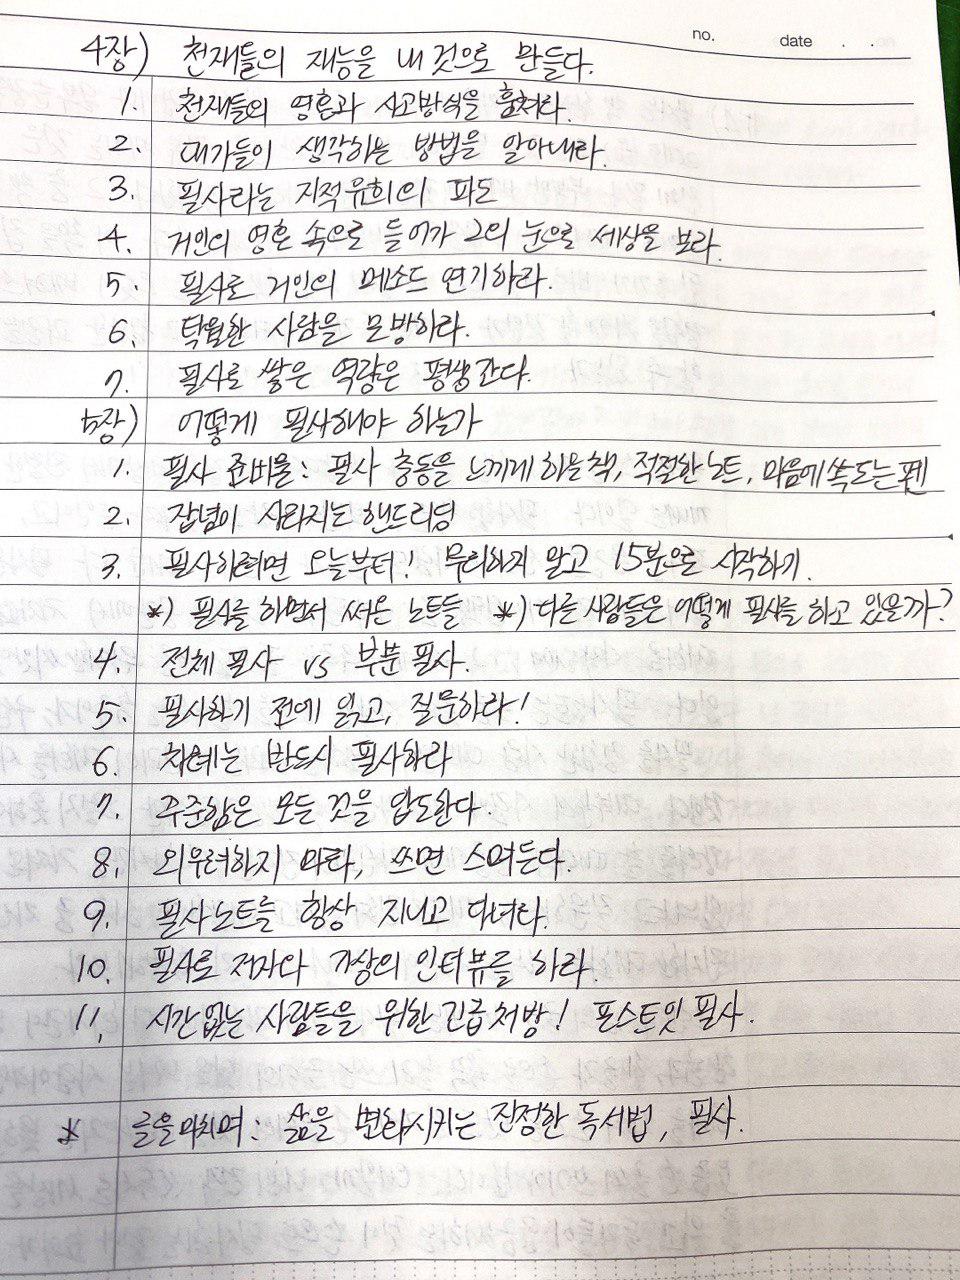 no. date . .
4장) 천재들의 재능을 내 것으로 만들다.
1. 천재들의 영혼과 사고방식을 훔쳐라.
2. 대가들이 생각하는 방법을 알아내라.
3. 필사라는 지적유희의 파도
4. 거인의 영혼 속으로 들어가 그의 눈으로 세상을 보라.
5. 필사로 거인의 메소드 연기하라.
6. 탁월한 사람을 모방하라.
7. 필사로 쌓은 역량은 평생간다.
5장) 어떻게 필사해야 하는가
1. 필사 준비물 : 필사 충동을 느끼게 하는 책, 적절한 노트, 마음에 쏙 드는 펜
2. 잡념이 사라지는 핸드리딩
3. 필사하려면 오늘부터! 무리하지 말고 15분으로 시작하기.
*) 필사를 하면서 써온 노트들 *) 다른 사람들은 어떻게 필사를 하고 있을까?
4. 전체 필사 vs 부분 필사.
5. 필사하기 전에 읽고, 질문하라!
6. 차례는 반드시 필사하라
7. 꾸준함은 모든 것을 압도한다.
8. 외우려하지 마라, 쓰면 스며든다.
9. 필사노트를 항상 지니고 다녀라.
10. 필사로 저자와 가상의 인터뷰를 하라.
11. 시간없는 사람들을 위한 긴급처방! 포스트잇 필사.
* 글을 마치며 : 삶을 변화시키는 진정한 독서법, 필사.